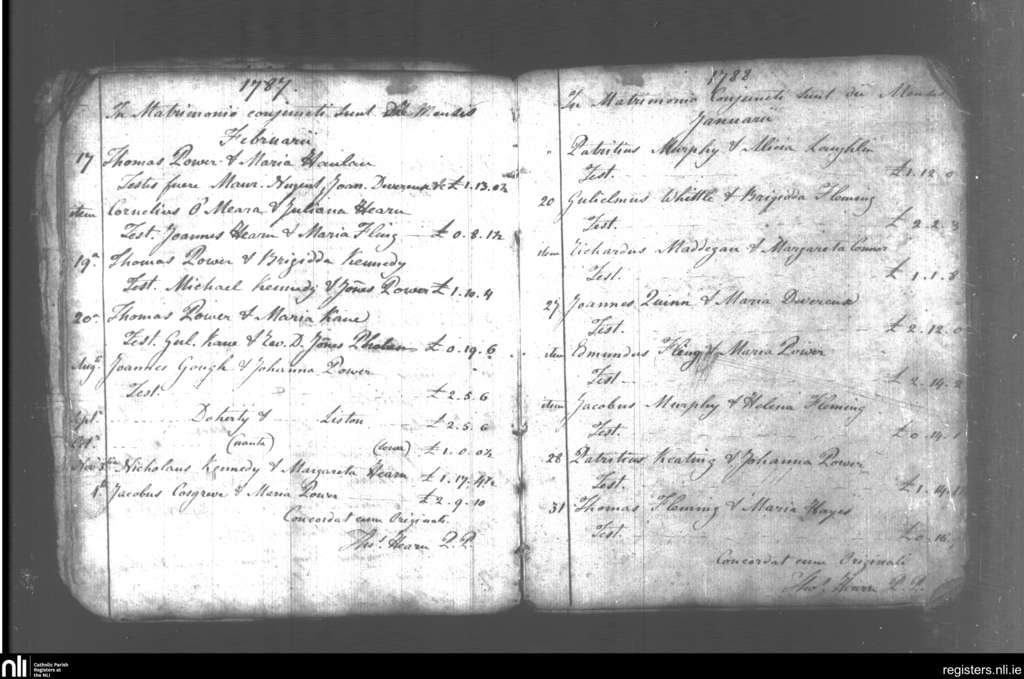 1787.
In Matrimonio conjuncti Sunt Mensis
Februarii
17 Thomas Power & Maria Hanlan
Testes fuere Maur. Nugent, Joan. Devereux &c £1.13.0½
item Cornelius O'Meara & Juliana Hearn
Test. Joannes Hearn & Maria Fling — £0.8.1½
19.a Thomas Power & Brigidda Kennedy
Test. Michael Kennedy & Jões Power £1.10.4
20 Thomas Power & Maria Kane
Test. Gul. Kane & Rev. D. Jões Phelan £0.19.6
Augt. Joannes Gough & Johanna Power
Test. £2.5.6
Sept. Doherty & Liston £2.5.6
Oct. £1.0.0½
Novr. Nicholaus Kennedy & Margareta Hearn £1.17.4½
Jacobus Cosgrave & Maria Power £2.9.10
Concordat cum Originali
Thos. Hearn P.P.
1788
In Matrimonio Conjuncti Sunt die Mensis
Januarii
" Patritius Murphy & Alicia Laughlin
Test. £1.12.0
20 Gulielmus Whittle & Brigidda Fleming
Test. £2.2.3
item Richardus Maddegan & Margareta Connor
Test. £1.1.8
27 Joannes Quinn & Maria Devereux
Test. £2.12.0
item Edmundus Fleng & Maria Power
Test — £2.14.2
item Jacobus Murphy & Helena Fleming
Test. £0.14.1
28 Patritius Keating & Johanna Power
Test. £1.14.1
31 Thomas Fleming & Maria Hayes
Test. £0.16.
Concordat cum Originali
Thos. Hearn P.P.
nli
Catholic Parish
Registers at
the NLI
registers.nli.ie